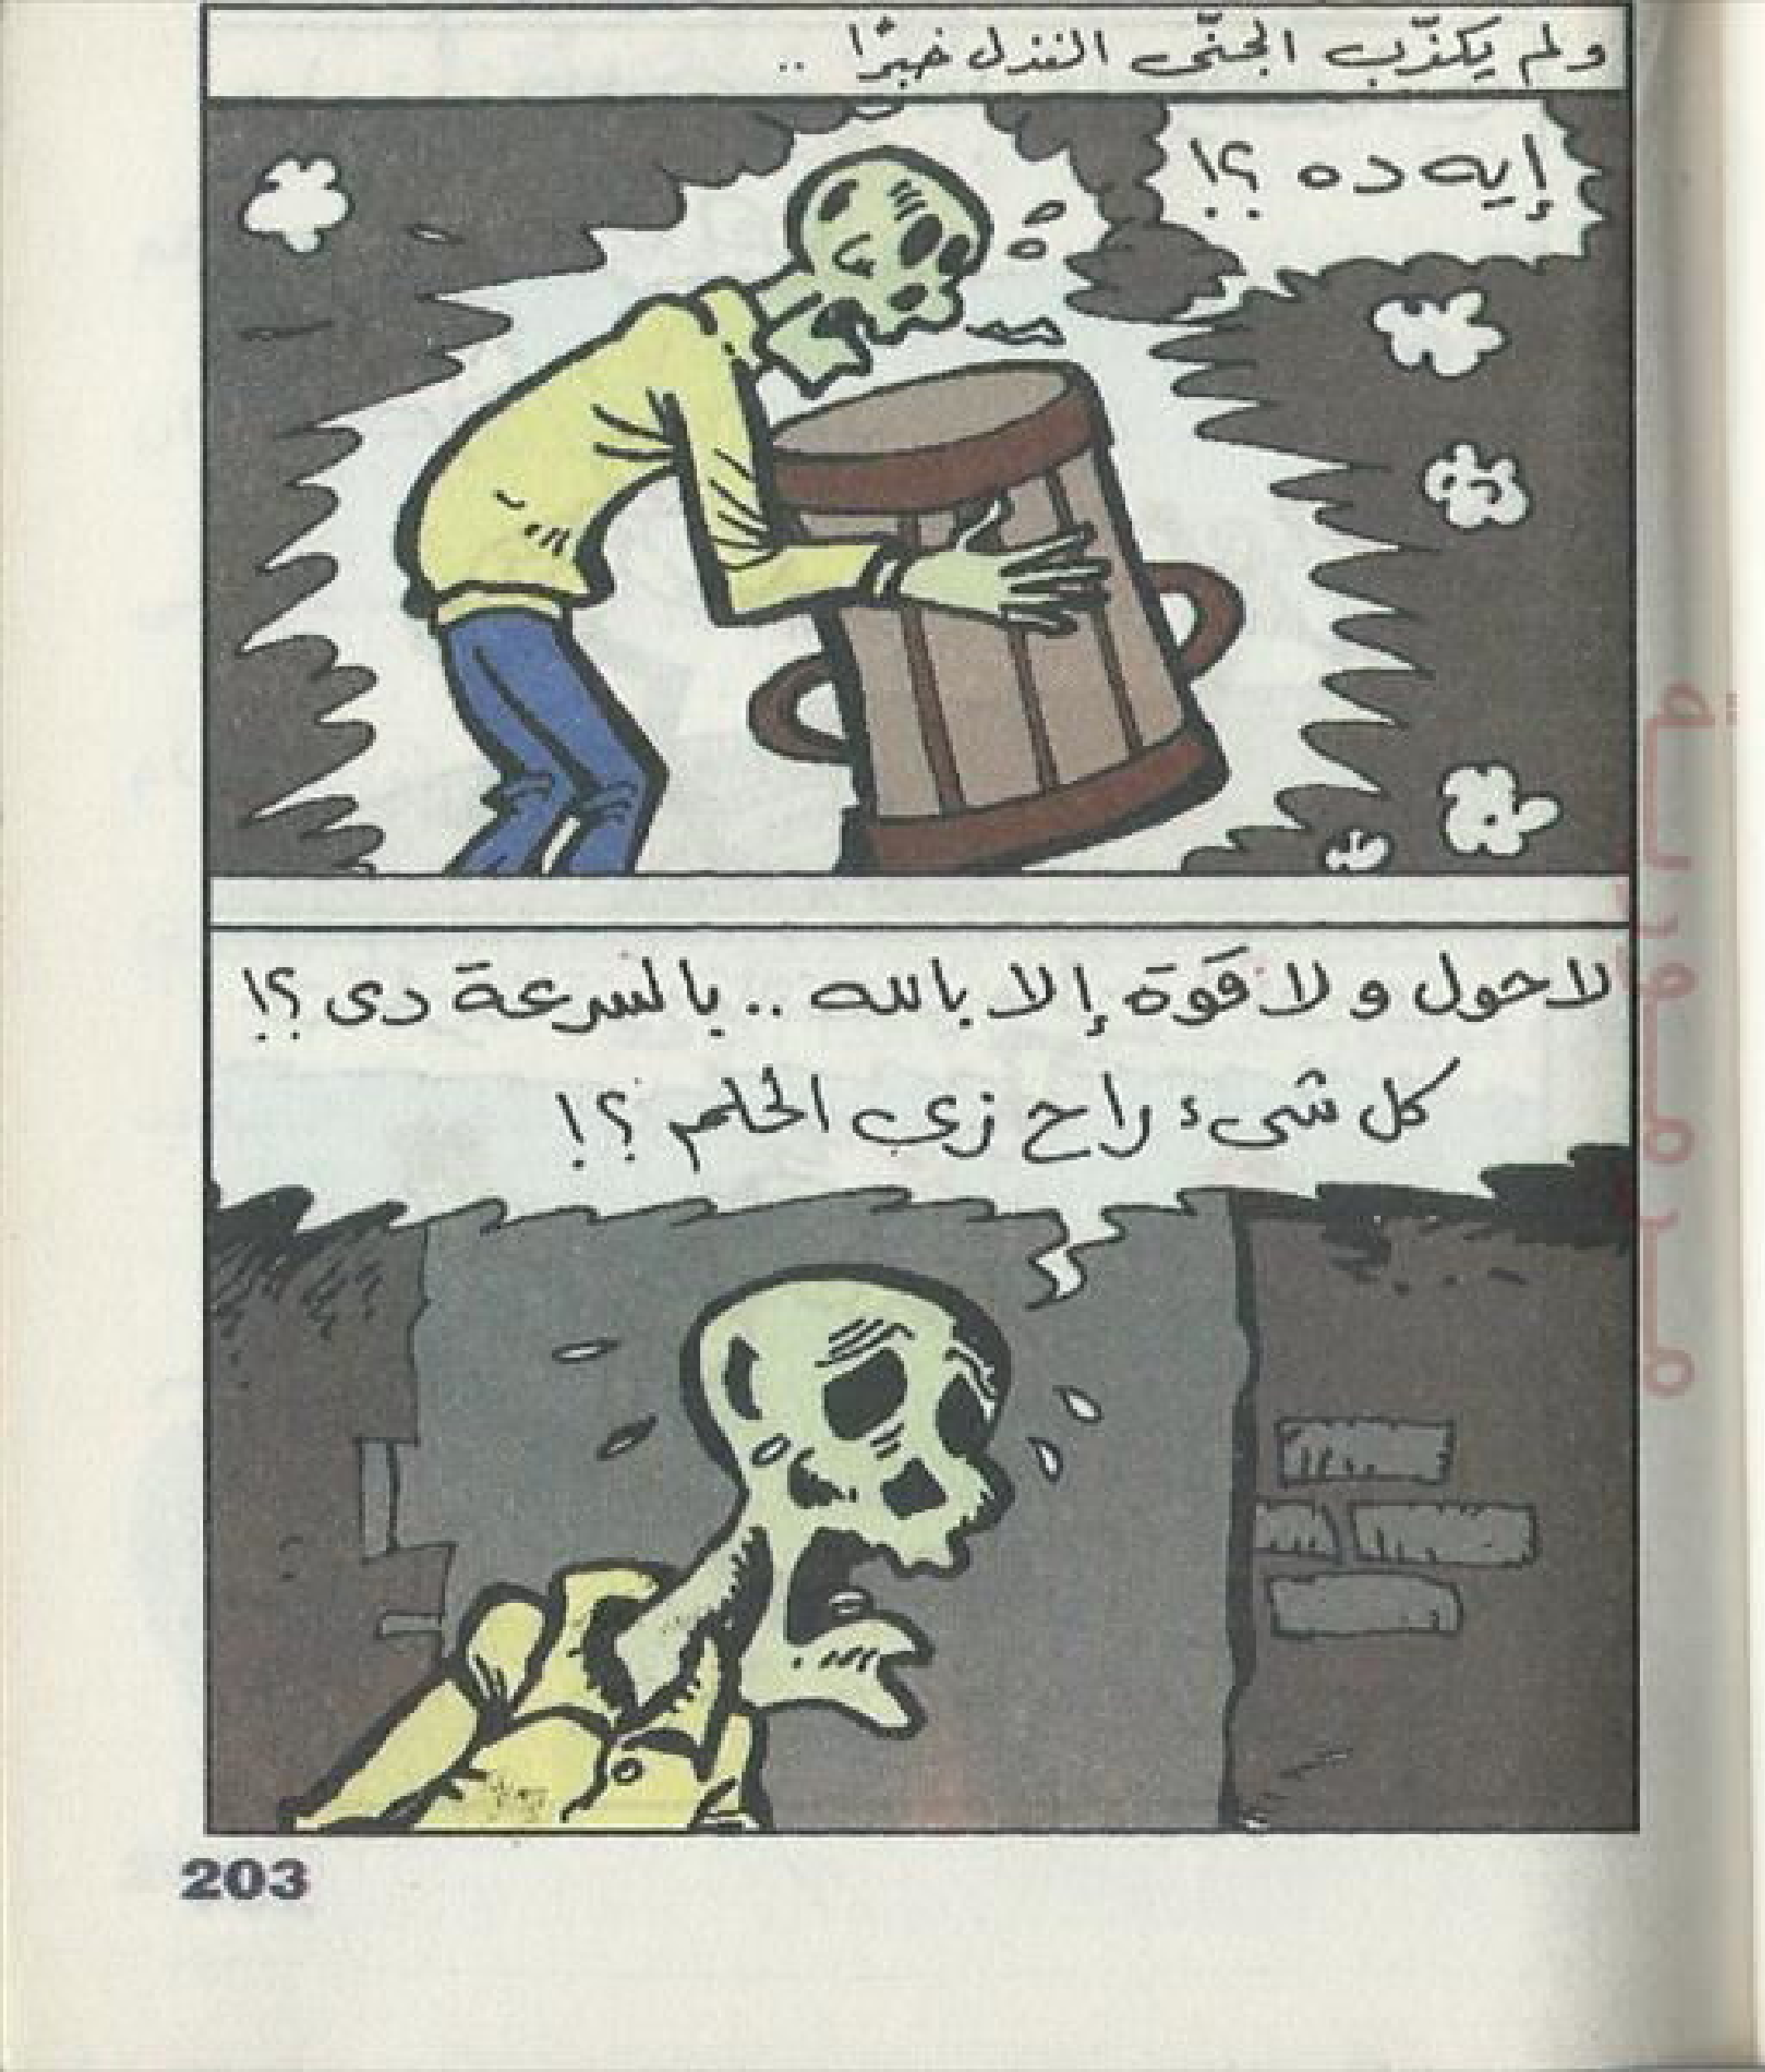 ولم يكذّب الجنّى النذل خبرًا ..
إيه ده ؟!
لا حول ولا قوة إلا بالله .. بالسرعة دى ؟!
كل شىء راح زى الحلم ؟!
203